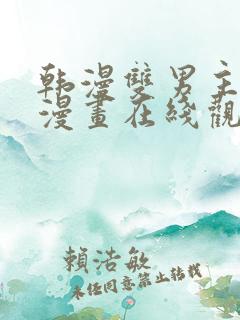 韩漫雙男主
漫畫在綫觀
賴浩敏
未经同意禁止转载